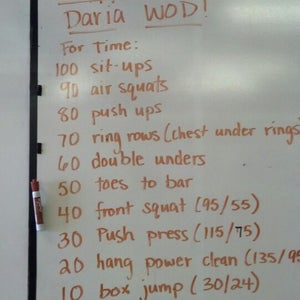 Daria WOD!
For Time:
100 sit-ups
90 air squats
80 push ups
70 ring rows (chest under rings
60 double unders
50 toes to bar
40 front squat (95/55)
30 Push press (115/75)
20 hang power clean (135/95
10 box jump (30/24)